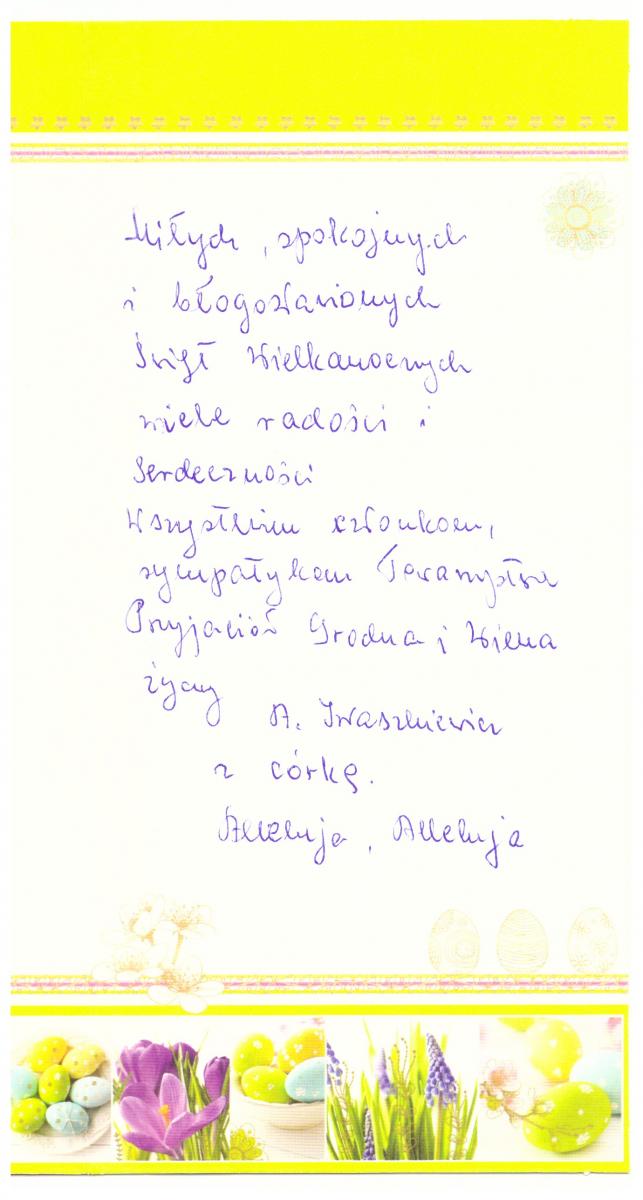 Miłych, spokojnych
i błogosławionych
Świąt Wielkanocnych
wiele radości i
Serdeczności
Wszystkim członkom,
sympatykom Towarzystwa
Przyjaciół Grodna i Wilna
życzy
A. Iwaszkiewicz
z córką.
Alleluja, Alleluja